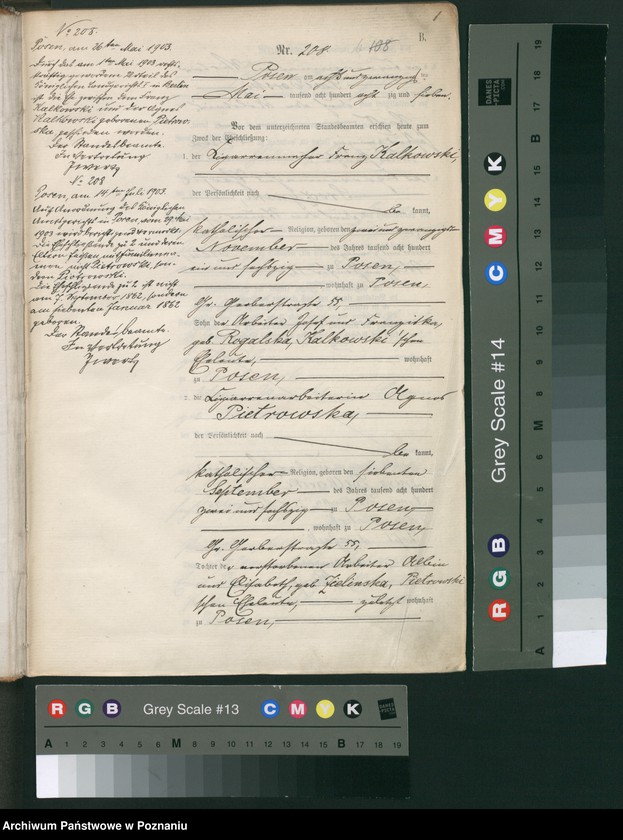 1
B.
Nr. 208.
Posen am achtundzwanzigsten
Mai tausend acht hundert acht zig und sieben.
Vor dem unterzeichneten Standesbeamten erschien heute zum
Zweck der Eheschließung:
1. der Zigarrenmacher Franz Kalkowski,
der Persönlichkeit nach
be kannt,
katholischer Religion, geboren den zweiundzwanzigsten
November des Jahres tausend acht hundert
ein und sechzig zu Posen,
wohnhaft zu Posen,
Gr. Gerberstraße 55,
Sohn der Arbeiter Josef und Franziska,
geb. Rogalska, Kalkowski'schen
Eheleute, wohnhaft
zu Posen,
2. die Zigarrenarbeiterin Agnes
Pietrowska,
der Persönlichkeit nach
be kannt,
katholischer Religion, geboren den siebenten
September des Jahres tausend acht hundert
zwei und sechzig zu Posen,
, wohnhaft zu Posen,
Gr. Gerberstraße 55,
Tochter der verstorbenen Arbeiter Albin
und Elisabeth, geb. Zielinska, Pietrowski
'schen Eheleute, zuletzt wohnhaft
zu Posen,
No 208.
Posen, am 26ten Mai 1903.
Durch das am 1ten Mai 1903 rechts-
kräftig gewordene Urteil des
Königlichen Landgerichts in
ist die Ehe zwischen dem Franz
Kalkowski und der Agnes
Kalkowski geborenen Pietrow-
ska geschieden worden.
Der Standesbeamte.
In Vertretung
No 208
Posen, am 14ten Juli 1903.
Auf Anordnung des Königlichen
Amtsgerichts in Posen, vom 29. Mai
1903 wird berichtigend vermerkt:
die Eheschließende zu 2 und deren
Eltern heißen mit Familienna-
men nicht Pietrowski, son-
dern Piotrowski.
Die Eheschließende zu 2 ist nicht
am 7. September 1862, sondern
am siebenten Januar 1862
geboren.
Der Standesbeamte.
In Vertretung
Grey Scale #13
R G B C M Y K
A 1 2 3 4 5 6 M 8 9 10 11 12 13 14 15 B 17 18 19
Grey Scale #14
R G B C M Y K
A 1 2 3 4 5 6 M 8 9 10 11 12 13 14 15 B 17 18 19
DANES
-PICTA
.COM
Archiwum Państwowe w Poznaniu